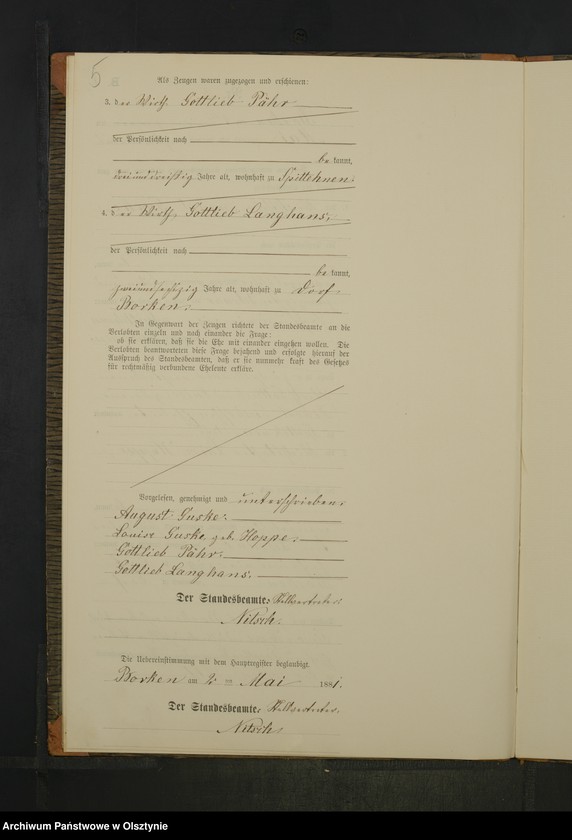 5
Als Zeugen waren zugezogen und erschienen:
3. der Wirth Gottlieb Pähr
der Persönlichkeit nach
be kannt,
dreiunddreißig Jahre alt, wohnhaft zu Spittehnen;
4. der Wirth Gottlieb Langhans,
der Persönlichkeit nach
be kannt,
zweiundsechzig Jahre alt, wohnhaft zu Dorf
Borken.
In Gegenwart der Zeugen richtete der Standesbeamte an die
Verlobten einzeln und nach einander die Frage:
ob sie erklären, daß sie die Ehe mit einander eingehen wollen. Die
Verlobten beantworteten diese Frage bejahend und erfolgte hierauf der
Ausspruch des Standesbeamten, daß er sie nunmehr kraft des Gesetzes
für rechtmäßig verbundene Eheleute erkläre.
Vorgelesen, genehmigt und unterschrieben:
August Guske.
Louise Guske, geb. Hoppe.
Gottlieb Pähr.
Gottlieb Langhans.
Der Standesbeamte.
Nitsch.
Die Uebereinstimmung mit dem Hauptregister beglaubigt.
Borken am 2 ten Mai 1881.
Der Standesbeamte.
Nitsch.
Archiwum Państwowe w Olsztynie